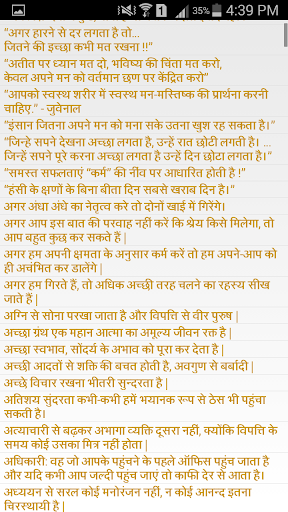 35% 4:39 PM
"अगर हारने से दर लगता है तो...
जितने की इच्छा कभी मत रखना !!"
"अतीत पर ध्यान मत दो, भविष्य की चिंता मत करो,
केवल अपने मन को वर्तमान छण पर केंद्रित करो"
"आपको स्वस्थ शरीर में स्वस्थ मन-मस्तिष्क की प्रार्थना करनी
चाहिए." - जुवेनाल
"इंसान जितना अपने मन को मना सके उतना खुश रह सकता है।"
"जिन्हे सपने देखना अच्छा लगता है, उन्हें रात छोटी लगती है। ...
जिन्हें सपने पूरे करना अच्छा लगता है उन्हें दिन छोटा लगता है।"
"समस्त सफलताएं “कर्म” की नींव पर आधारित होती है !"
"हंसी के क्षणों के बिना बीता दिन सबसे खराब दिन है।"
अगर अंधा अंधे का नेतृत्व करे तो दोनों खाई में गिरेंगे।
अगर आप इस बात की परवाह नहीं करें कि श्रेय किसे मिलेगा, तो
आप बहुत कुछ कर सकते हैं |
अगर हम अपनी क्षमता के अनुसार कर्म करें तो हम अपने-आप को
ही अचंभित कर डालेंगे |
अगर हम गिरते हैं, तो अधिक अच्छी तरह चलने का रहस्य सीख
जाते हैं |
अग्नि से सोना परखा जाता है और विपत्ति से वीर पुरुष |
अच्छा ग्रंथ एक महान आत्मा का अमूल्य जीवन रक्त है |
अच्छा स्वभाव, सोंदर्य के अभाव को पूरा कर देता है |
अच्छी आदतों से शक्ति की बचत होती है, अवगुण से बर्बादी |
अच्छे विचार रखना भीतरी सुन्दरता है |
अतिशय सुंदरता कभी-कभी हमें भयानक रूप से ठेस भी पहुंचा
सकती है।
अत्याचारी से बढ़कर अभागा व्यक्ति दूसरा नहीं, क्योंकि विपत्ति के
समय कोई उसका मित्र नही होता |
अधिकारी: वह जो आपके पहुंचने के पहले ऑफिस पहुंच जाता है
और यदि कभी आप जल्दी पहुंच जाएं तो काफी देर से आता है।
अध्ययन से सरल कोई मनोरंजन नहीं, न कोई आनन्द इतना
चिरस्थायी है |